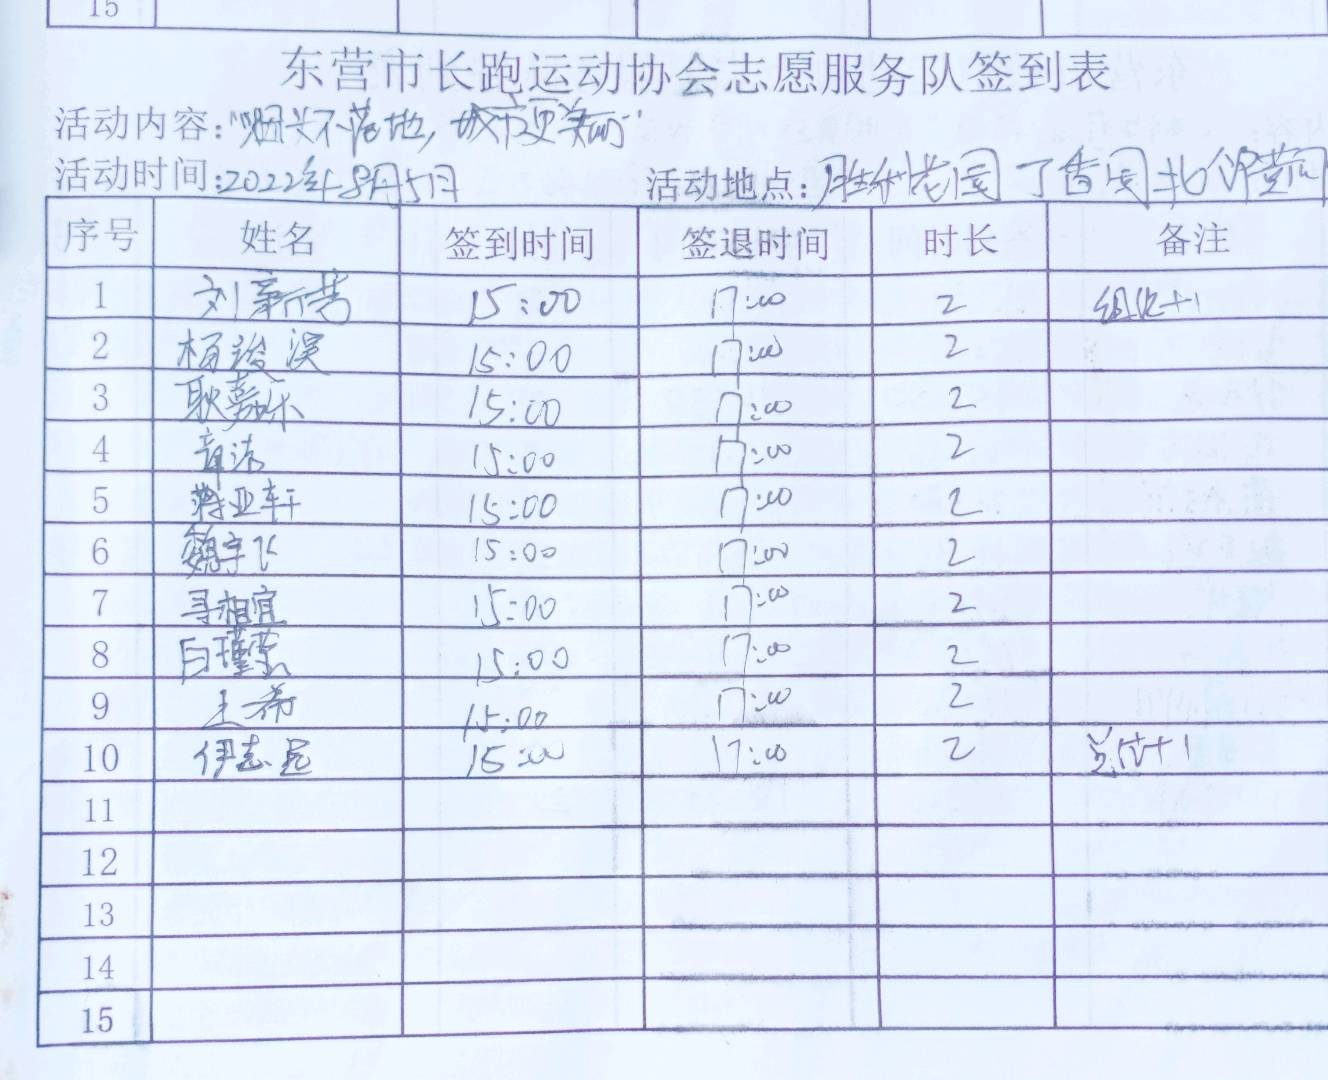 15
东营市长跑运动协会志愿服务队签到表
活动内容:"烟头不落地,城市更美丽"
活动时间:2022年8月5日 活动地点:胜利花园丁香园北
序号 姓名 签到时间 签退时间 时长 备注
1 刘新营 15:00 17:00 2 组织+1
2 杨 15:00 17:00 2
3 耿 15:00 17:00 2
4 章涛 15:00 17:00 2
5 蒋亚轩 15:00 17:00 2
6 魏宇飞 15:00 17:00 2
7 寻相宜 15:00 17:00 2
8 白瑾萱 15:00 17:00 2
9 王希 15:00 17:00 2
10 伊志远 15:00 17:00 2 总结+1
11
12
13
14
15